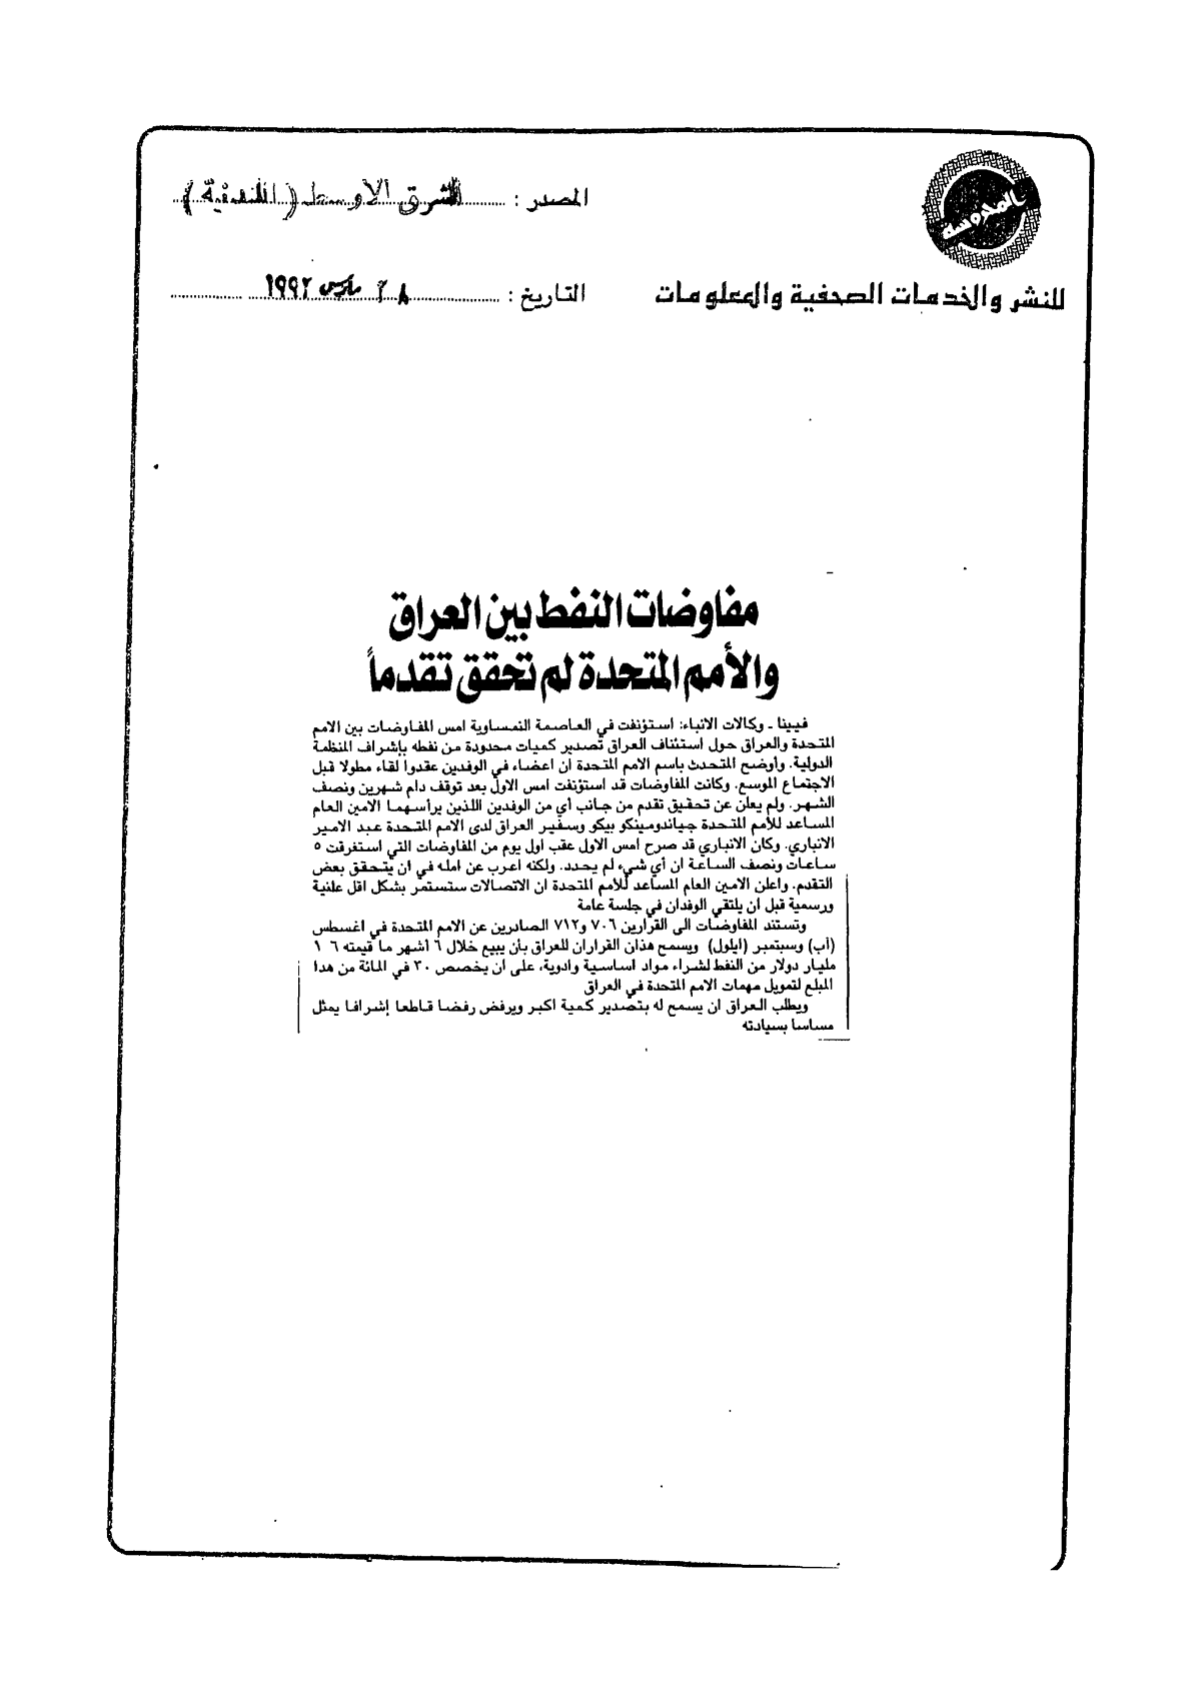 بالمحروسة
المصدر : الشرق الأوسط ( اللندنية )
للنشر والخدمات الصحفية والمعلومات
التاريخ : ٢٨ مارس ١٩٩٢
مفاوضات النفط بين العراق
والأمم المتحدة لم تحقق تقدماً
فيينا ـ وكالات الانباء: استؤنفت في العاصمة النمساوية امس المفاوضات بين الامم
المتحدة والعراق حول استئناف العراق تصدير كميات محدودة من نفطه بإشراف المنظمة
الدولية. وأوضح المتحدث باسم الامم المتحدة ان اعضاء في الوفدين عقدوا لقاء مطولا قبل
الاجتماع الموسع. وكانت المفاوضات قد استؤنفت امس الاول بعد توقف دام شهرين ونصف
الشهر. ولم يعلن عن تحقيق تقدم من جانب أي من الوفدين اللذين يرأسهما الامين العام
المساعد للأمم المتحدة جياندومينكو بيكو وسفير العراق لدى الامم المتحدة عبد الامير
الانباري. وكان الانباري قد صرح امس الاول عقب اول يوم من المفاوضات التي استغرقت ٥
ساعات ونصف الساعة ان أي شيء لم يحدد. ولكنه اعرب عن امله في ان يتحقق بعض
التقدم. واعلن الامين العام المساعد للأمم المتحدة ان الاتصالات ستستمر بشكل اقل علنية
ورسمية قبل ان يلتقي الوفدان في جلسة عامة
وتستند المفاوضات الى القرارين ٧٠٦ و٧١٢ الصادرين عن الامم المتحدة في اغسطس
(آب) وسبتمبر (ايلول) ويسمح هذان القراران للعراق بان يبيع خلال ٦ اشهر ما قيمته ٦ ١
مليار دولار من النفط لشراء مواد اساسية وادوية، على ان يخصص ٣٠ في المائة من هذا
المبلغ لتمويل مهمات الامم المتحدة في العراق
ويطلب العراق ان يسمح له بتصدير كمية اكبر ويرفض رفضا قاطعا إشرافا يمثل
مساسا بسيادته